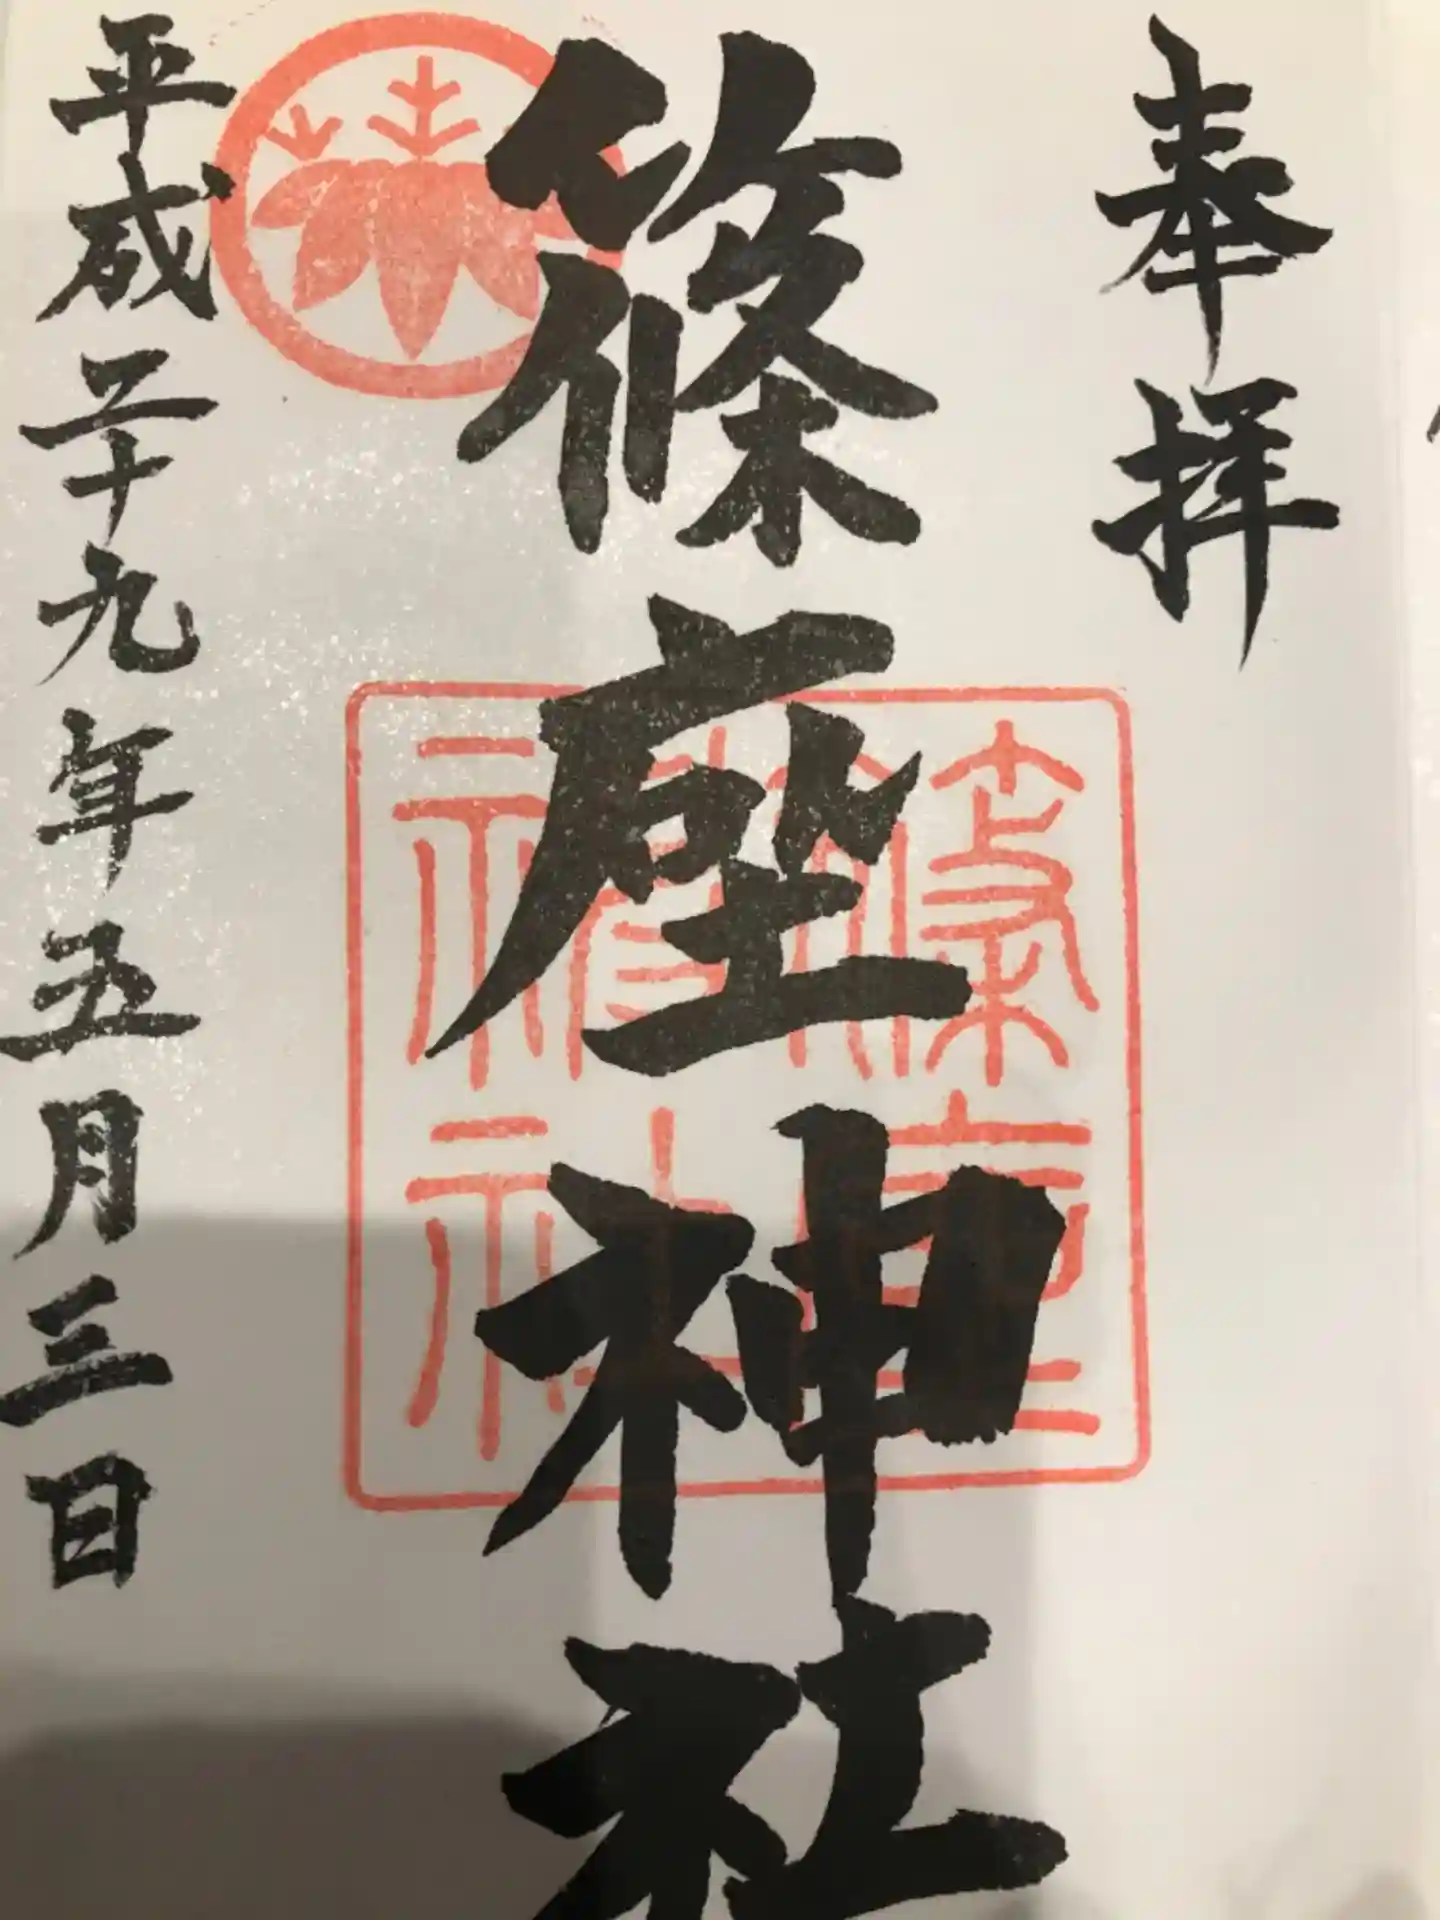 奉拝
篠座神社
篠座神社
平成二十九年五月三日